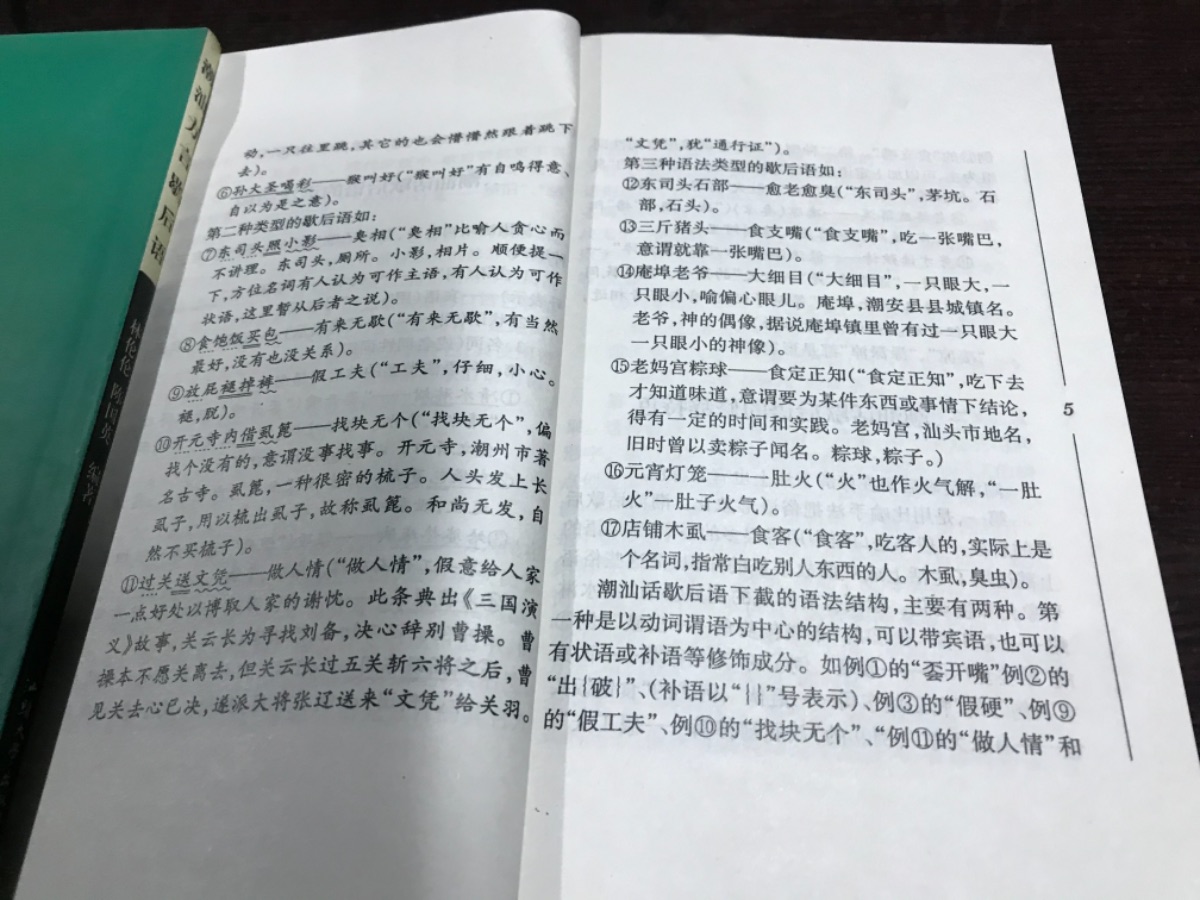 潮汕方言歇后语
林伦伦 陈国英 编著
动,一只往里跳,其它的也会懵懵然跟着跳下
去)。
⑥孙大圣喝彩——猴叫好(“猴叫好”有自鸣得意、
自以为是之意)。
第二种类型的歇后语如:
⑦东司头照小影——臭相(“臭相”比喻人贪心而
不讲理。东司头,厕所。小影,相片。顺便提一
下,方位名词有人认为可作主语,有人认为可作
状语,这里暂从后者之说)。
⑧食炮饭买包——有来无歇(“有来无歇”,有当然
最好,没有也没关系)。
⑨放屁褪掉裤——假工夫(“工夫”,仔细,小心。
褪,脱)。
⑩开元寺内借虱篦——找块无个(“找块无个”,偏
找个没有的,意谓没事找事。开元寺,潮州市著
名古寺。虱篦,一种很密的梳子。人头发上长
虱子,用以梳出虱子,故称虱篦。和尚无发,自
然不买梳子)。
⑪过关送文凭——做人情(“做人情”,假意给人家
一点好处以博取人家的谢忱。此条典出《三国演
义》故事,关云长为寻找刘备,决心辞别曹操。曹
操本不愿关离去,但关云长过五关斩六将之后,曹
见关去心已决,遂派大将张辽送来“文凭”给关羽。
“文凭”,犹“通行证”)。
第三种语法类型的歇后语如:
⑫东司头石部——愈老愈臭(“东司头”,茅坑。石
部,石头)。
⑬三斤猪头——食支嘴(“食支嘴”,吃一张嘴巴,
意谓就靠一张嘴巴)。
⑭庵埠老爷——大细目(“大细目”,一只眼大,一
只眼小,喻偏心眼儿。庵埠,潮安县县城镇名。
老爷,神的偶像,据说庵埠镇里曾有过一只眼大
一只眼小的神像)。
⑮老妈宫粽球——食定正知(“食定正知”,吃下去
才知道味道,意谓要为某件东西或事情下结论,
得有一定的时间和实践。老妈宫,汕头市地名,
旧时曾以卖粽子闻名。粽球,粽子。)
⑯元宵灯笼——一肚火(“火”也作火气解,“一肚
火”一肚子火气)。
⑰店铺木虱——食客(“食客”,吃客人的,实际上是
个名词,指常白吃别人东西的人。木虱,臭虫)。
潮汕话歇后语下截的语法结构,主要有两种。第
一种是以动词谓语为中心的结构,可以带宾语,也可以
有状语或补语等修饰成分。如例①的“枩开嘴”例②的
“出{破}”、(补语以“{ }”号表示)、例③的“假硬”、例⑨
的“假工夫”、例⑩的“找块无个”、“例⑪的“做人情”和
5